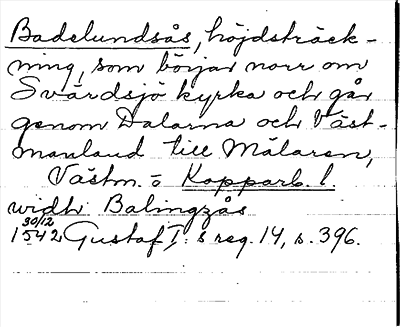 Badelundsås, höjdsträck-
ning, som börjar norr om
Svärdsjö kyrka och går
genom Dalarna och Väst-
manland till Mälaren,
Västm. o Kopparb. l.
widh Balingzås
30/12 1542 Gustaf I:s reg. 14, s. 396.